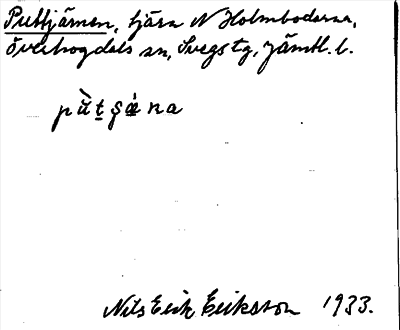 Puttjärnen, tjärn N Holmbodarna,
Överhogdals sn, Svegs tg, Jämtl. l.
pùt̠ʂǽna
Nils Erik Eriksson 1933.